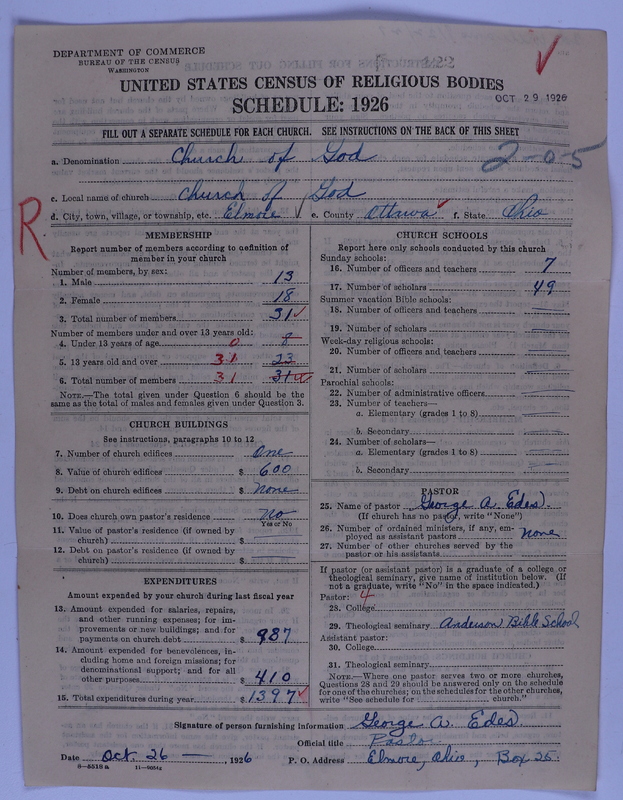 DEPARTMENT OF COMMERCE
BUREAU OF THE CENSUS
WASHINGTON
UNITED STATES CENSUS OF RELIGIOUS BODIES
SCHEDULE: 1926
OCT 29 1926
FILL OUT A SEPARATE SCHEDULE FOR EACH CHURCH. SEE INSTRUCTIONS ON THE BACK OF THIS SHEET
a. Denomination Church of God
2-0-5
c. Local name of church Church of God
d. City, town, village, or township, etc. Elmore e. County Ottawa f. State Ohio
R
MEMBERSHIP
Report number of members according to definition of member in your church
Number of members, by sex:
1. Male 13
2. Female 18
3. Total number of members 31
Number of members under and over 13 years old:
4. Under 13 years of age 0 8
5. 13 years old and over 31 23
6. Total number of members 31 31
NOTE.—The total given under Question 6 should be
same as the total of males and females given under Question 3.
CHURCH BUILDINGS
See instructions, paragraphs 10 to 12
7. Number of church edifices One
8. Value of church edifices $ 600
9. Debt on church edifices $ None
10. Does church own pastor's residence No
Yes or No
11. Value of pastor's residence (if owned by
church) $
12. Debt on pastor's residence (if owned by
church) $
EXPENDITURES
Amount expended by your church during last fiscal year
13. Amount expended for salaries, repairs,
and other running expenses; for im-
provements or new buildings; and for
payments on church debt $ 987
14. Amount expended for benevolences, in-
cluding home and foreign missions; for
denominational support; and for all
other purposes $ 410
15. Total expenditures during year $ 1397
CHURCH SCHOOLS
Report here only schools conducted by this church
Sunday schools:
16. Number of officers and teachers 7
17. Number of scholars 49
Summer vacation Bible schools:
18. Number of officers and teachers
19. Number of scholars
Week-day religious schools:
20. Number of officers and teachers
21. Number of scholars
Parochial schools:
22. Number of administrative officers
23. Number of teachers—
a. Elementary (grades 1 to 8)
b. Secondary
24. Number of scholars—
a. Elementary (grades 1 to 8)
b. Secondary
PASTOR
25. Name of pastor George A. Edes
(If church has no pastor, write "None")
26. Number of ordained ministers, if any, em-
ployed as assistant pastors none
27. Number of other churches served by the
pastor or his assistants
If pastor (or assistant pastor) is a graduate of a college or
theological seminary, give name of institution below. (If
not a graduate, write "No" in the space indicated.)
Pastor: 4
28. College
29. Theological seminary Anderson Bible School
Assistant pastor:
30. College
31. Theological seminary
NOTE.—Where one pastor serves two or more churches,
Questions 28 and 29 should be answered only on the schedule
for one of the churches; on the schedules for the other churches,
write "See schedule for church."
Signature of person furnishing information George A. Edes
Official title Pastor
Date Oct. 26 —, 1926 P. O. Address Elmore, Ohio, Box 25
8—5518a 11—9054g